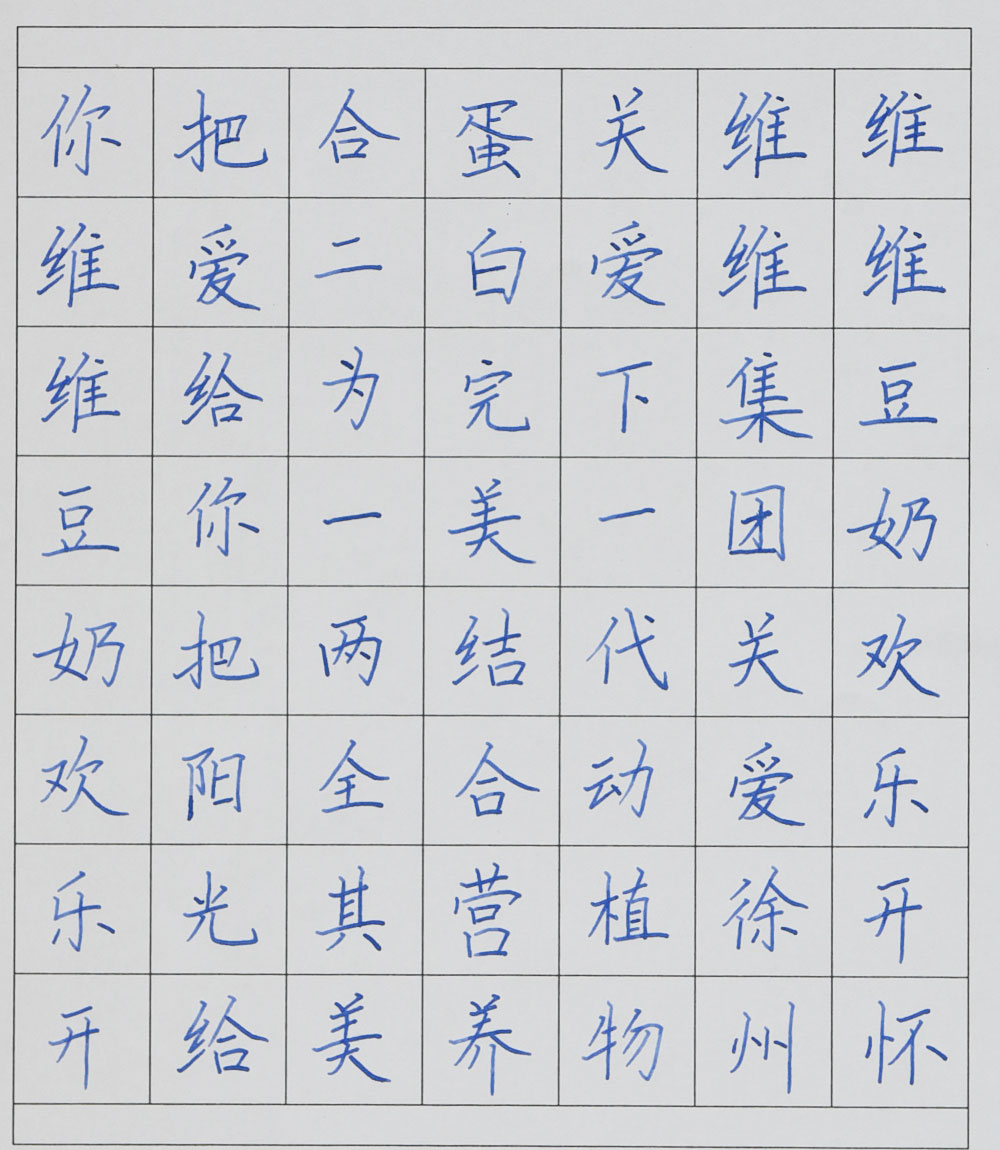 维维豆奶欢乐开怀
维维集团关爱徐州
关爱下一代动植物
蛋白完美结合营养
合二为一两全其美
把爱给你把阳光给
你维维豆奶欢乐开